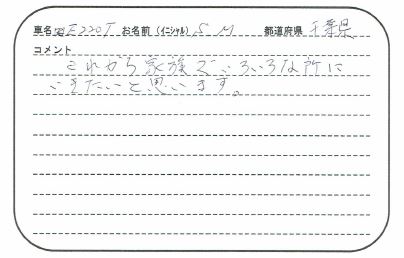 車名 E220T お名前(イニシャル) S M 都道府県 千葉県
コメント
これから家族でいろいろな所に
いきたいと思います。